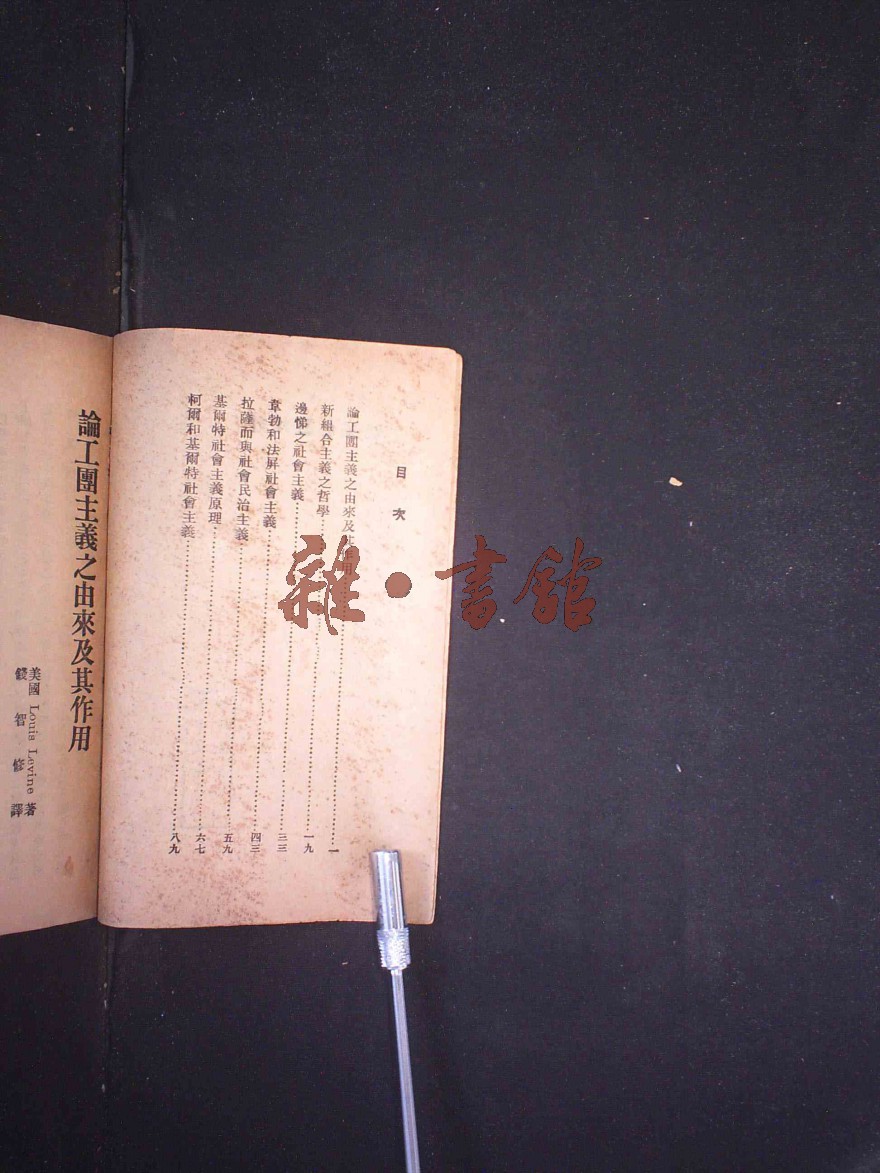 目次
論工團主義之由來及其作用……一
新組合主義之哲學……一九
邊悌之社會主義……三三
韋勃和法屏社會主義……四三
拉薩而與社會民治主義……五九
基爾特社會主義原理……六七
柯爾和基爾特社會主義……八九
論工團主義之由來及其作用
美國 Louis Levine 著
錢智修譯
雜·書館